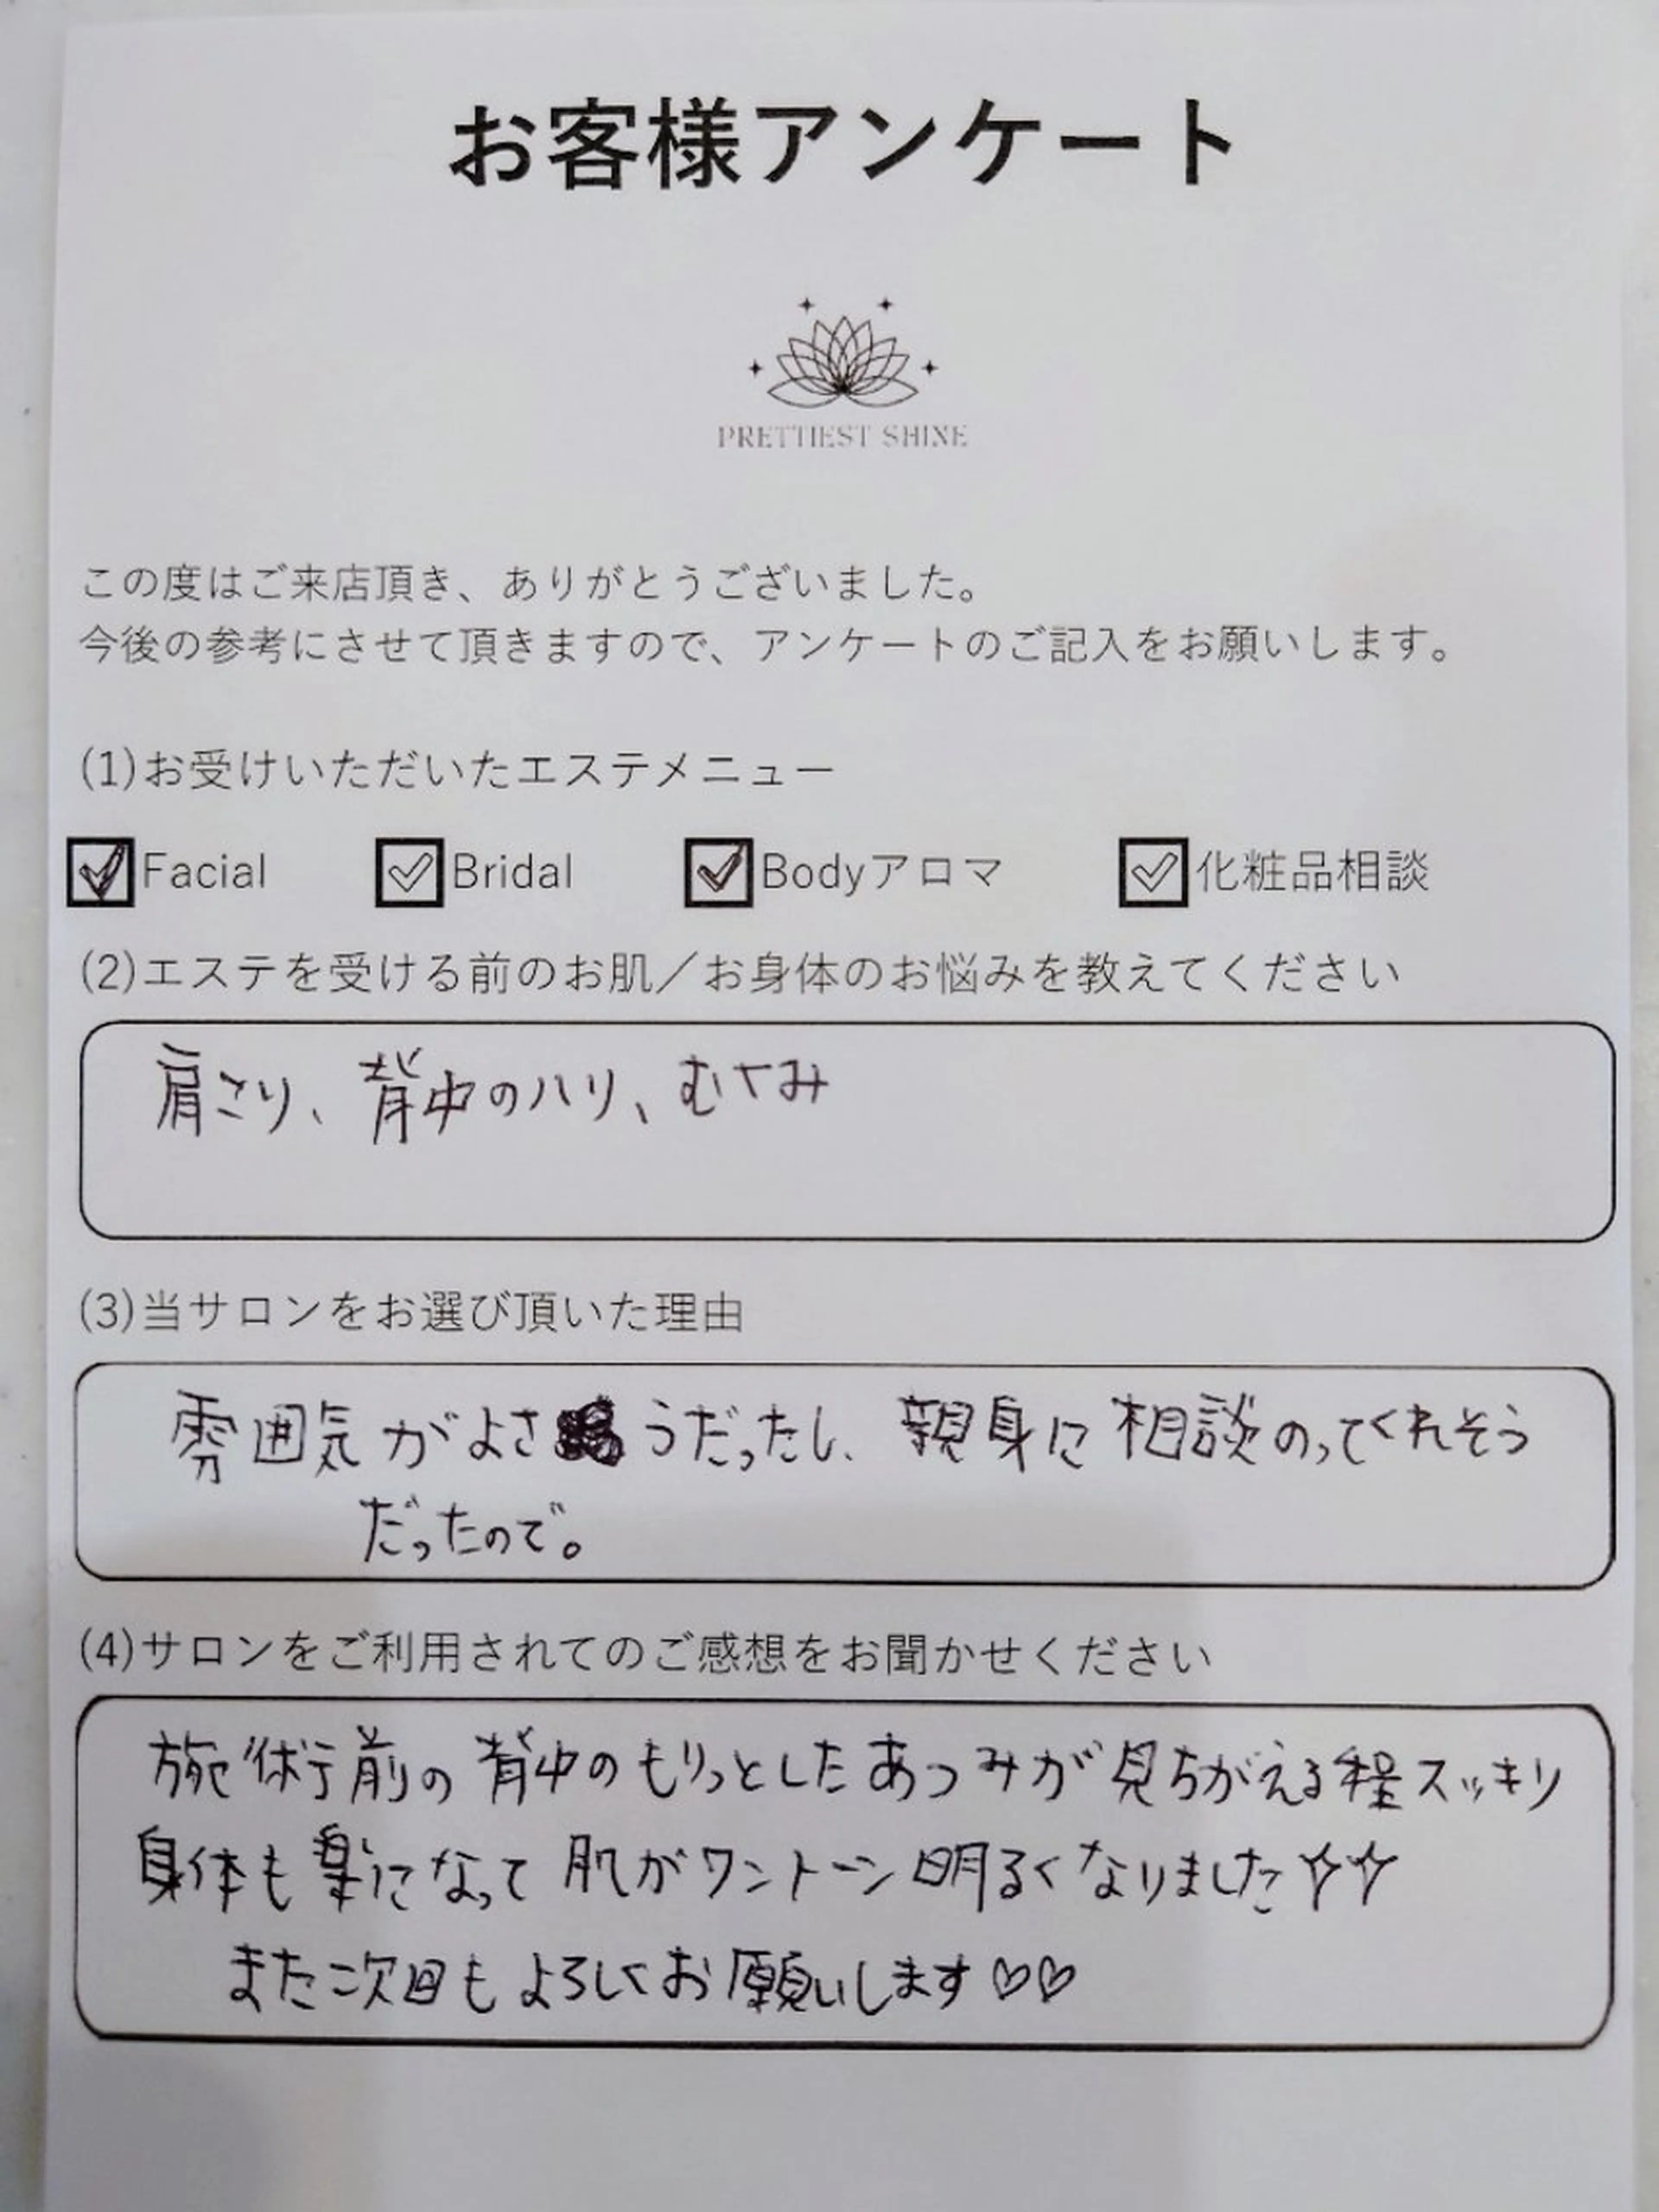 お客様アンケート
PRETTIEST SHINE
この度はご来店頂き、ありがとうございました。
今後の参考にさせて頂きますので、アンケートのご記入をお願いします。
(1)お受けいただいたエステメニュー
Facial Bridal Bodyアロマ 化粧品相談
(2)エステを受ける前のお肌／お身体のお悩みを教えてください
肩こり、背中のハリ、むくみ
(3)当サロンをお選び頂いた理由
雰囲気がよさうだったし、親身に相談のってくれそう
だったので。
(4)サロンをご利用されてのご感想をお聞かせください
施術前の背中のもりっとしたあつみが見ちがえる程スッキリ
身体も楽になって肌がワントーン明るくなりました☆☆
また次回もよろしくお願いします♡♡